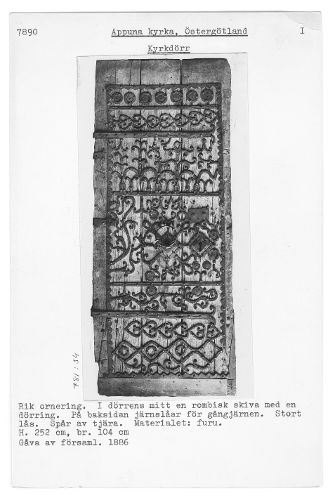 7890 Appuna kyrka, Östergötland I
Kyrkdörr
781:54
Rik ornering. I dörrens mitt en rombisk skiva med en
dörring. På baksidan järnslåar för gångjärnen. Stort
lås. Spår av tjära. Materialet: furu.
H. 252 cm, br. 104 cm
Gåva av församl. 1886